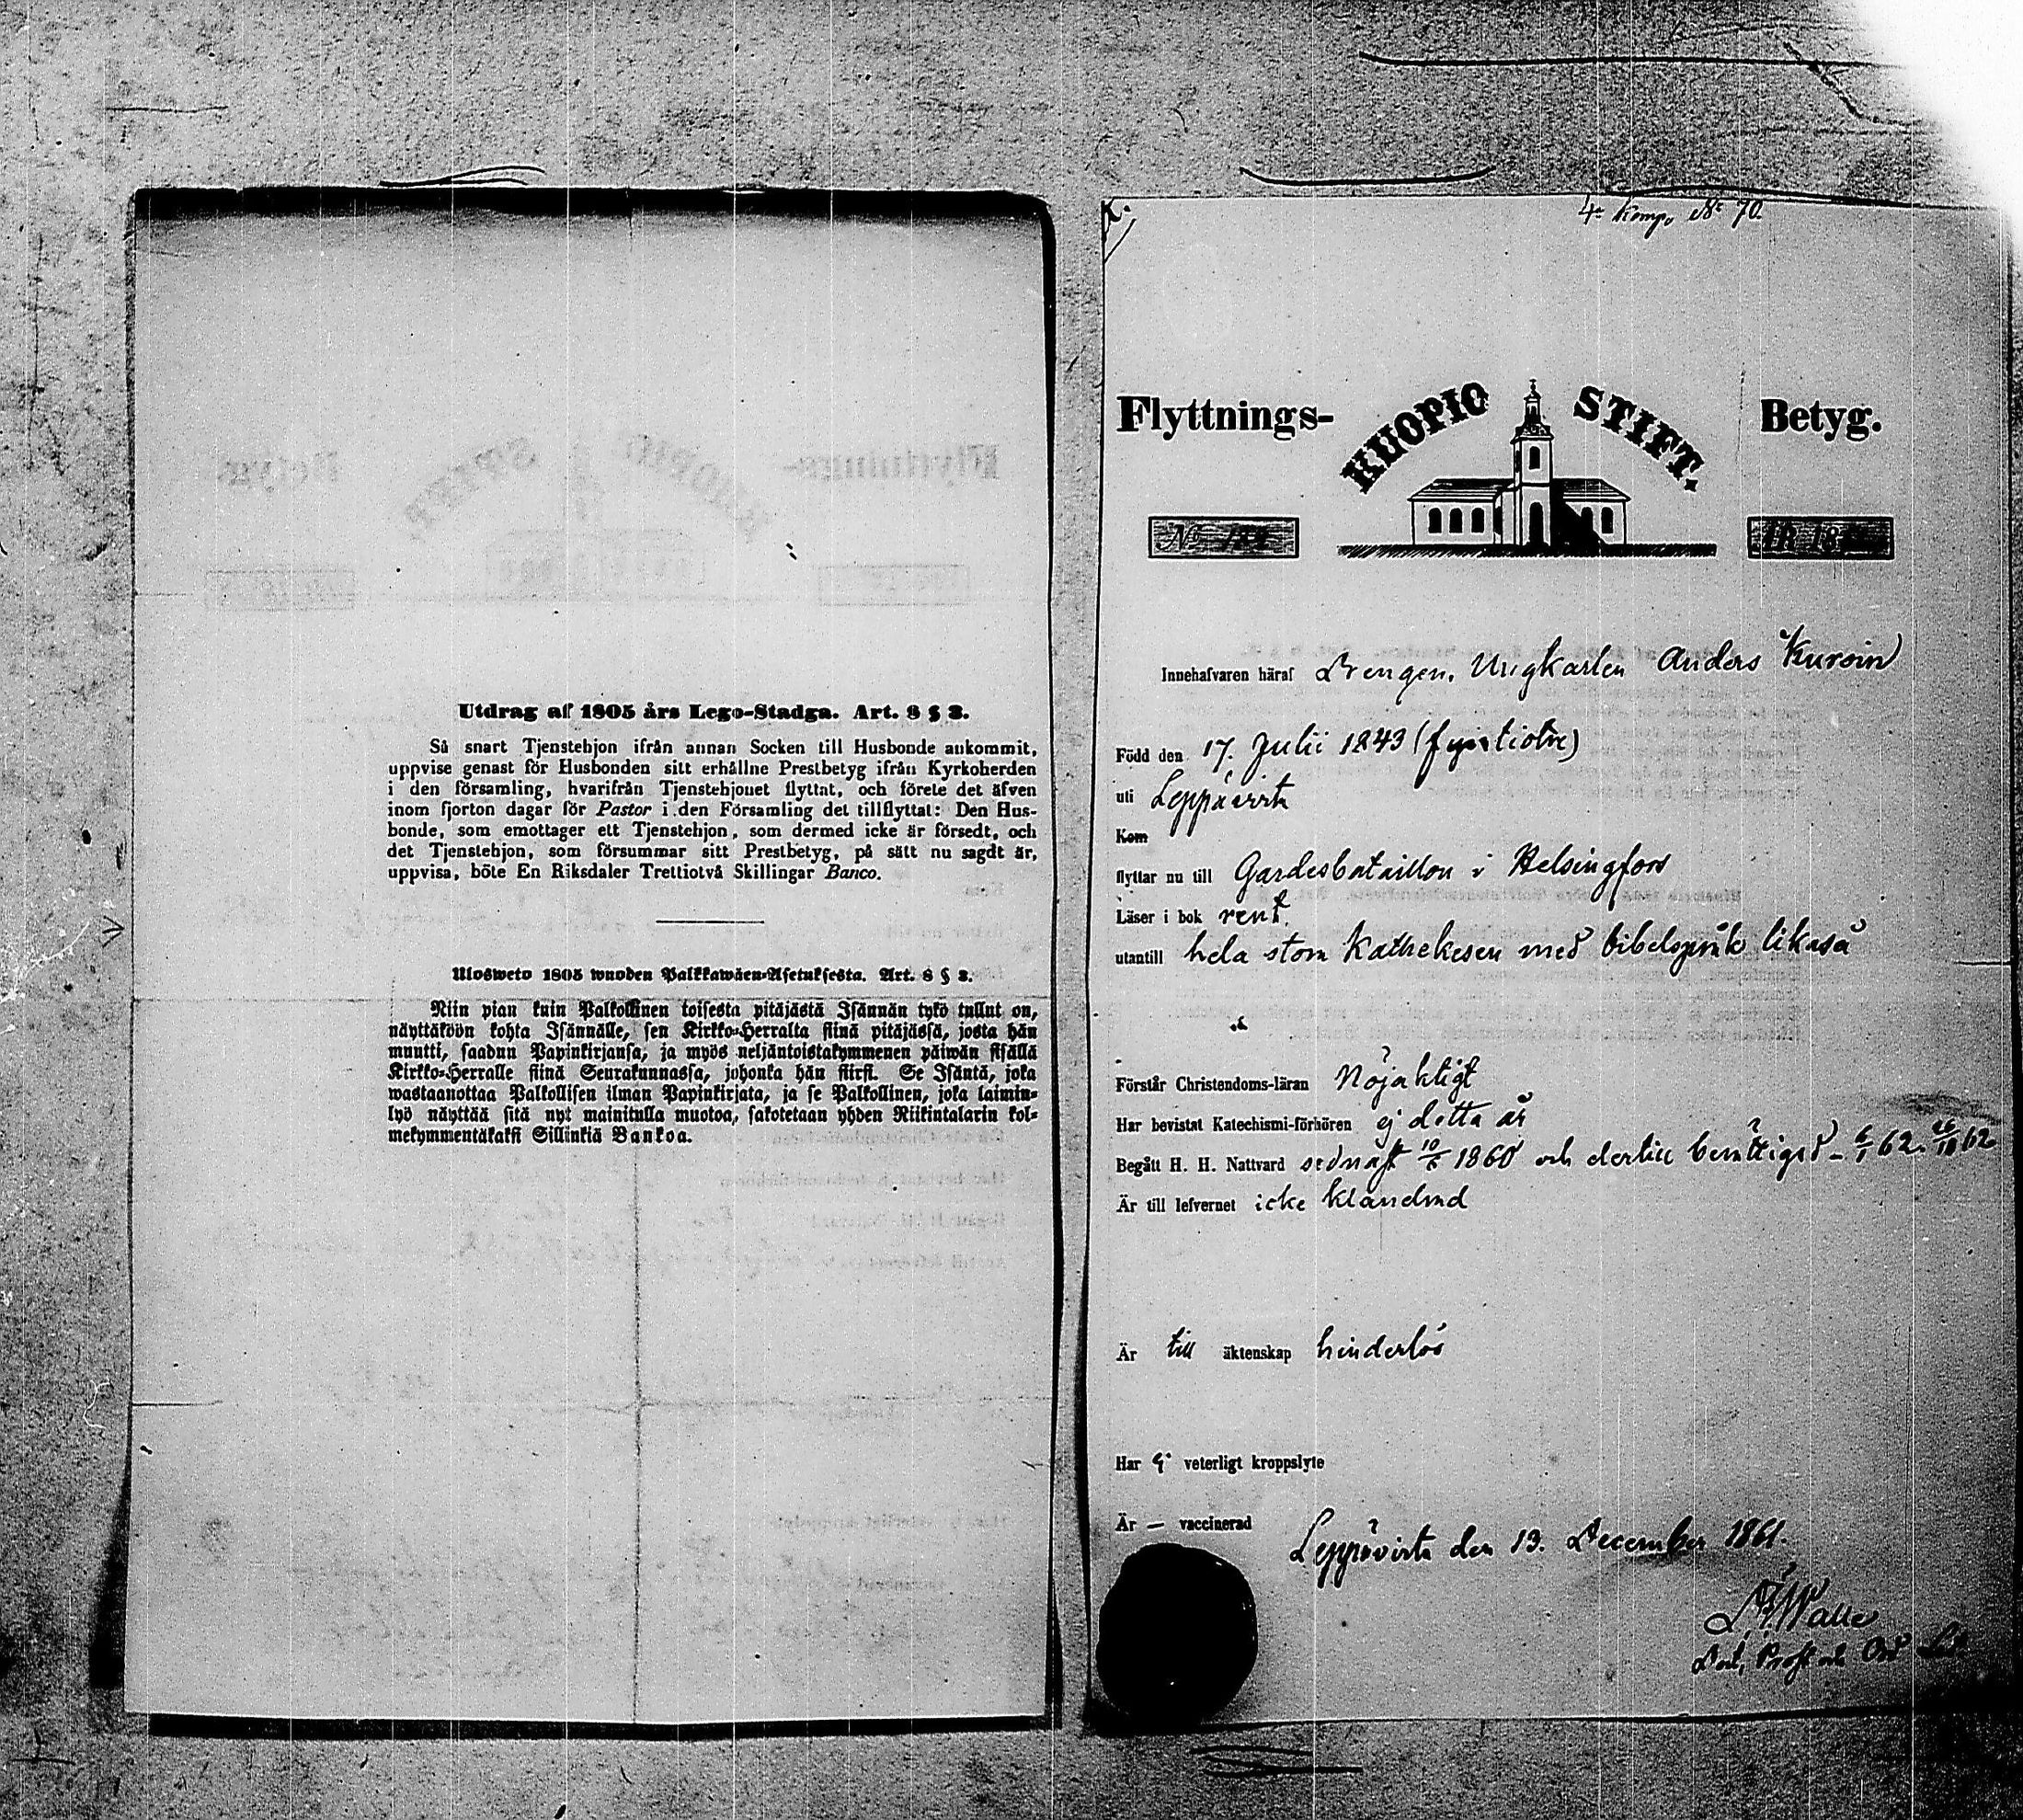 Utdrag af 1805 års Lego-Stadga. Art. 8 § 3.
Så snart Tjenstehjon ifrån annan Socken till Husbonde ankommit,
uppvise genast för Husbonden sitt erhållne Prestbetyg ifrån Kyrkoherden
i den församling, hvarifrån Tjenstehjonet flyttat, och förete det äfven
inom fjorton dagar för Pastor i den Församling det tillflyttat: Den Hus-
bonde, som emottager ett Tjenstehjon, som dermed icke är försedt, och
det Tjenstehjon, som försummar sitt Prestbetyg, på sätt nu sagdt är,
uppvisa, böte En Riksdaler Trettiotvå Skillingar Banco.
Ulosweto 1805 wuoden Palkkawäen-Asetuksesta. Art. 8 § 3.
Niin pian kuin Palkollinen toisesta pitäjästä Isännän tykö tullut on,
näyttäköön kohta Isännälle, sen Kirkko-Herralta siinä pitäjässä, josta hän
muutti, saadun Papinkirjansa, ja myös neljäntoistakymmenen päiwän sisällä
Kirkko-Herralle siinä Seurakunnassa, johonka hän siirsi. Se Isäntä, joka
wastaanottaa Palkollisen ilman Papinkirjata, ja se Palkollinen, joka laimin-
lyö näyttää sitä nyt mainitulla muotoa, sakotetaan yhden Riikintalarin kol-
mekymmentäkaksi Sillinkiä Bankoa.
4e Komp. No 70
Flyttnings- KUOPIO STIFT. Betyg.
No
Innehafvaren häraf Drengen, Ungkarlen Anders Kursin
Född den 17. Julii 1843 (fyratiotre)
uti Leppävirta
Kom
flyttar nu till Gardesbataillon i Helsingfors
Läser i bok rent
utantill hela stora Kathekesen med bibelspråk likaså
Förstår Christendoms-läran Nöjaktigt
Har bevistat Katechismi-förhören ej detta år
Begått H. H. Nattvard sednast 1860 och dertill berättigad
Är till lefvernet icke klandrad
Är till äktenskap hinderlös
Har ej veterligt kroppslyte
Är — vaccinerad
Leppävirta den 13. December 1861.
Walle
Prost och